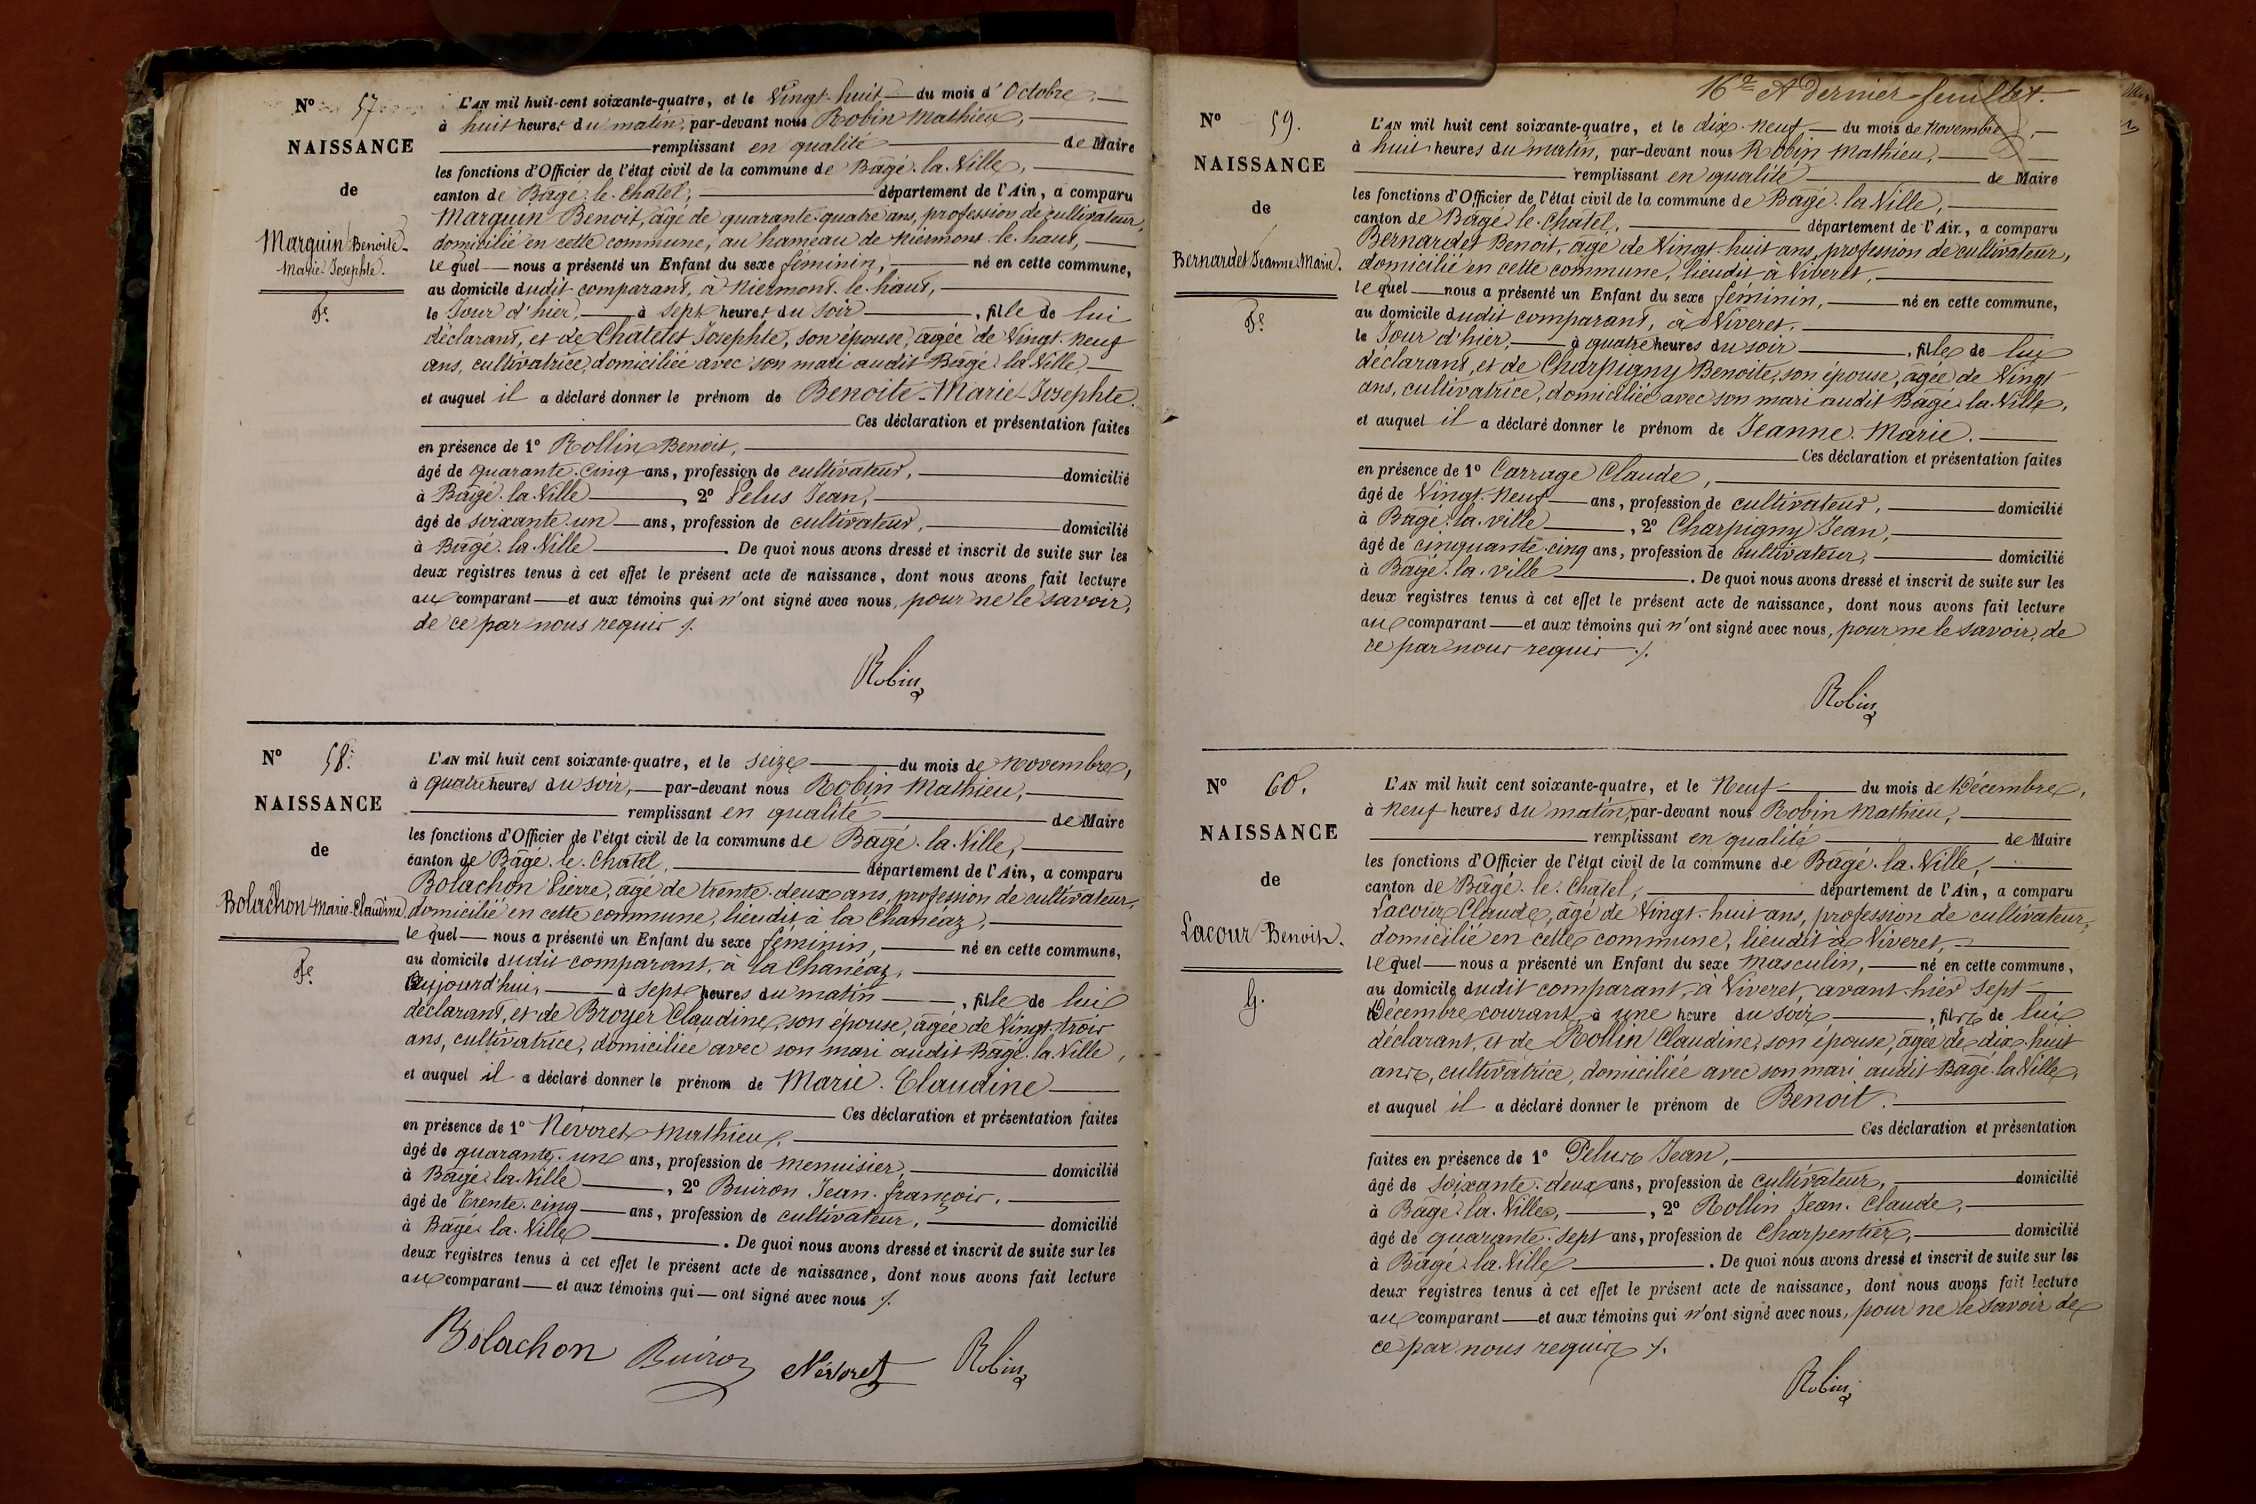 N° 57
NAISSANCE
de
Marguin Benoite-
Marie-Josephte.
Fe.
L'AN mil huit-cent soixante-quatre, et le Vingt-huit du mois d'Octobre,
à huit heures du matin, par-devant nous Robin Mathieu,
remplissant en qualité de Maire
les fonctions d'Officier de l'état civil de la commune de Bâgé-la-Ville,
canton de Bâgé-le-Chatel, département de l'Ain, a comparu
Marguin Benoit, âgé de quarante-quatre ans, profession de cultivateur,
domicilié en cette commune, au hameau de Niermont-le-haut,
lequel nous a présenté un Enfant du sexe féminin, né en cette commune,
au domicile dudit comparant, à Niermont-le-haut,
le Jour d'hier, à sept heures du soir, fille de lui
déclarant, et de Châtelet Josephte, son épouse, âgée de Vingt-neuf
ans, cultivatrice, domiciliée avec son mari audit Bâgé-la-Ville,
et auquel il a déclaré donner le prénom de Benoite-Marie-Josephte.
Ces déclaration et présentation faites
en présence de 1° Rollin Benoit,
âgé de quarante-cinq ans, profession de cultivateur, domicilié
à Bâgé-la-Ville, 2° Pelus Jean,
âgé de soixante-un ans, profession de cultivateur, domicilié
à Bâgé-la-Ville. De quoi nous avons dressé et inscrit de suite sur les
deux registres tenus à cet effet le présent acte de naissance, dont nous avons fait lecture
au comparant et aux témoins qui n'ont signé avec nous, pour ne le savoir,
de ce par nous requis ./.
Robin
N° 58.
NAISSANCE
de
Bolachon Marie-Claudine
Fe.
L'AN mil huit cent soixante-quatre, et le seize du mois de Novembre,
à quatre heures du soir, par-devant nous Robin Mathieu,
remplissant en qualité de Maire
les fonctions d'Officier de l'état civil de la commune de Bâgé-la-Ville,
canton de Bâgé-le-Châtel, département de l'Ain, a comparu
Bolachon Pierre, âgé de trente-deux ans, profession de cultivateur,
domicilié en cette commune, lieudit à la Chanéaz,
lequel nous a présenté un Enfant du sexe féminin, né en cette commune,
au domicile dudit comparant, à la Chanéaz,
Aujourd'hui, à sept heures du matin, fille de lui
déclarant, et de Broyer Claudine, son épouse, âgée de Vingt-trois
ans, cultivatrice, domiciliée avec son mari audit Bâgé-la-Ville,
et auquel il a déclaré donner le prénom de Marie-Claudine
Ces déclaration et présentation faites
en présence de 1° Névoret Mathieu,
âgé de quarante-un ans, profession de menuisier, domicilié
à Bâgé-la-Ville, 2° Buiron Jean-françois,
âgé de Trente-cinq ans, profession de cultivateur, domicilié
à Bâgé-la-Ville. De quoi nous avons dressé et inscrit de suite sur les
deux registres tenus à cet effet le présent acte de naissance, dont nous avons fait lecture
au comparant et aux témoins qui ont signé avec nous ./.
Bolachon Buiron Névoret Robin
16e et Dernier feuillet.
N° 59.
NAISSANCE
de
Bernardet Jeanne-Marie.
Fe.
L'AN mil huit cent soixante-quatre, et le dix-neuf du mois de Novembre,
à huit heures du matin, par-devant nous Robin Mathieu,
remplissant en qualité de Maire
les fonctions d'Officier de l'état civil de la commune de Bâgé-la-Ville,
canton de Bâgé-le-Chatel, département de l'Ain, a comparu
Bernardet Benoit, âgé de Vingt-huit ans, profession de cultivateur,
domicilié en cette commune, lieudit à Viveret,
lequel nous a présenté un Enfant du sexe féminin, né en cette commune,
au domicile dudit comparant, à Viveret,
le Jour d'hier, à quatre heures du soir, fille de lui
déclarant, et de Charpigny Benoite, son épouse, âgée de Vingt
ans, cultivatrice, domiciliée avec son mari audit Bâgé-la-Ville,
et auquel il a déclaré donner le prénom de Jeanne-Marie.
Ces déclaration et présentation faites
en présence de 1° Carrage Claude,
âgé de Vingt-neuf ans, profession de cultivateur, domicilié
à Bâgé-la-ville, 2° Charpigny Jean,
âgé de cinquante-cinq ans, profession de cultivateur, domicilié
à Bâgé-la-ville. De quoi nous avons dressé et inscrit de suite sur les
deux registres tenus à cet effet le présent acte de naissance, dont nous avons fait lecture
au comparant et aux témoins qui n'ont signé avec nous, pour ne le savoir, de
ce par nous requis ./.
Robin
N° 60.
NAISSANCE
de
Lacour Benoit.
G.
L'AN mil huit cent soixante-quatre, et le Neuf du mois de Décembre,
à neuf heures du matin, par-devant nous Robin Mathieu,
remplissant en qualité de Maire
les fonctions d'Officier de l'état civil de la commune de Bâgé-la-Ville,
canton de Bâgé-le-Châtel, département de l'Ain, a comparu
Lacour Claude, âgé de Vingt-huit ans, profession de cultivateur,
domicilié en cette commune, lieudit à Viveret,
lequel nous a présenté un Enfant du sexe Masculin, né en cette commune,
au domicile dudit comparant, à Viveret, avant-hier sept
Décembre courant, à une heure du soir, fils de lui
déclarant, et de Rollin Claudine, son épouse, âgée de dix-huit
ans, cultivatrice, domiciliée avec son mari audit Bâgé-la-Ville,
et auquel il a déclaré donner le prénom de Benoit.
Ces déclaration et présentation
faites en présence de 1° Pelus Jean,
âgé de soixante-deux ans, profession de cultivateur, domicilié
à Bâgé-la-Ville, 2° Rollin Jean-Claude,
âgé de quarante-sept ans, profession de Charpentier, domicilié
à Bâgé-la-Ville. De quoi nous avons dressé et inscrit de suite sur les
deux registres tenus à cet effet le présent acte de naissance, dont nous avons fait lecture
au comparant et aux témoins qui n'ont signé avec nous, pour ne le savoir de
ce par nous requis ./.
Robin